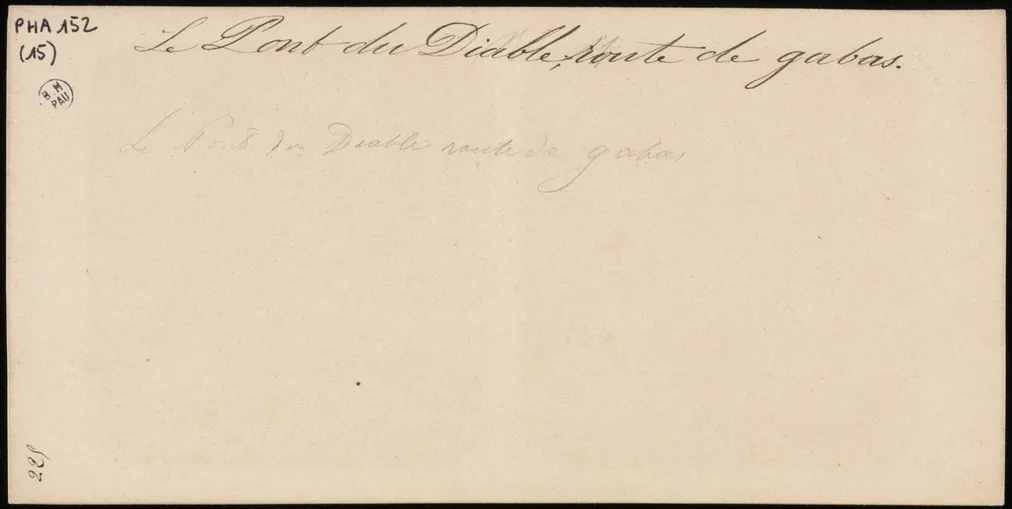 PHA 152
(15)
B M
PAU
Le Pont du Diable, route de gabas.
Le Pont du Diable route de gabas
225